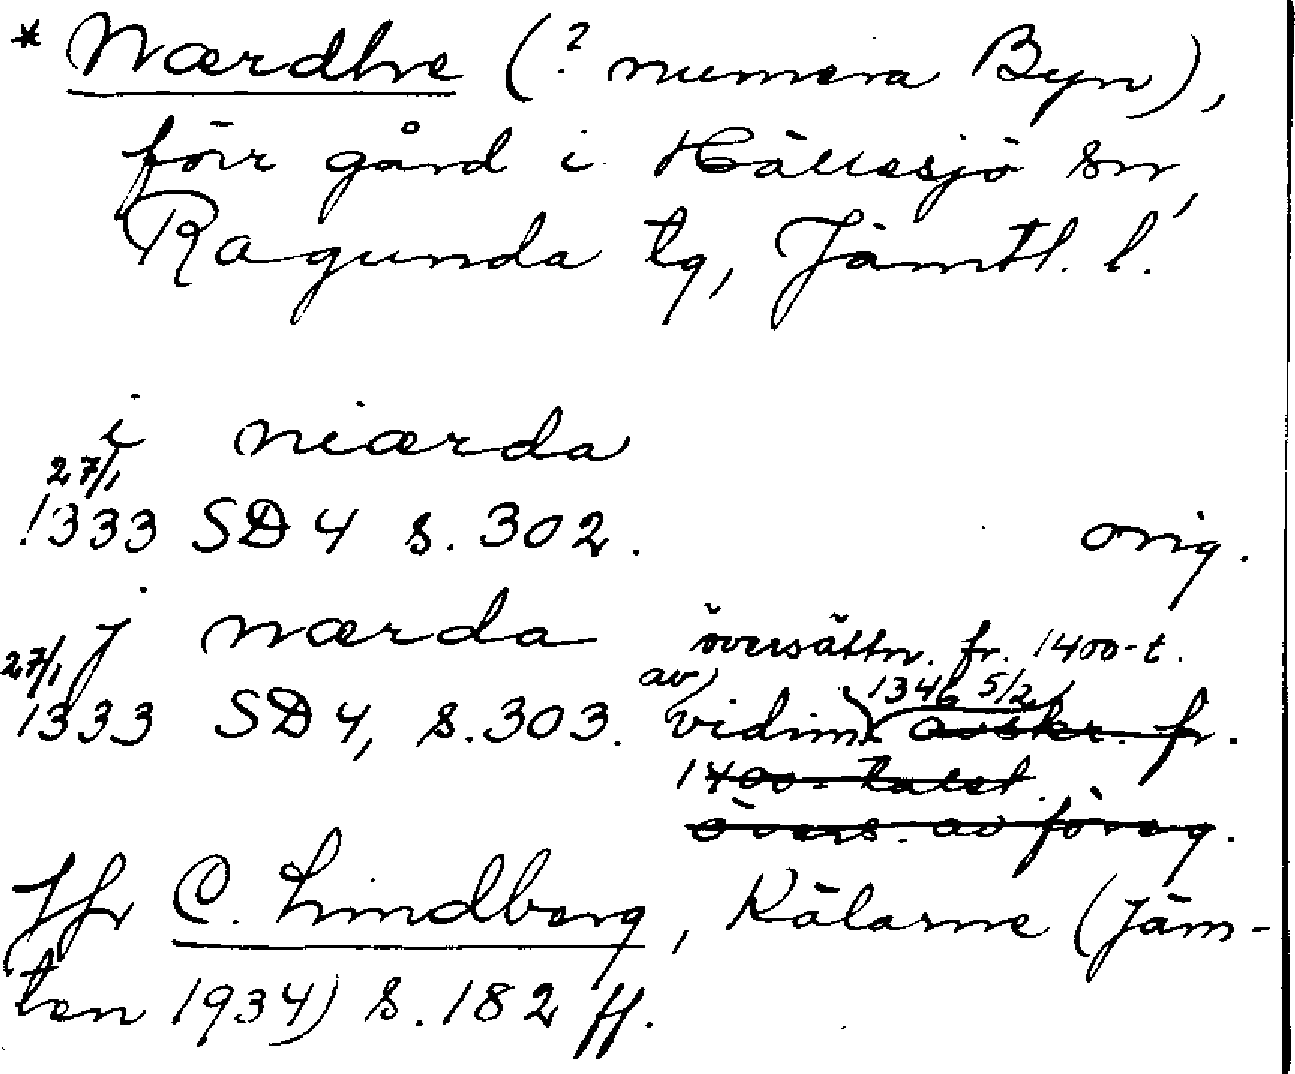 * Nærdhe (? numera Byn),
förr gård i Hällesjö sn,
Ragunda tg, Jämtl. l.
i niærda
27/1
1333 SD 4 s. 302. orig.
j nærda översättn. fr. 1400-t.
27/1 av 1346 5/2
1333 SD 4, s. 303. vidim. avskr. fr.
1400-talet.
övers. av föreg.
Jfr C. Lindberg, Kälarne (Jäm-
ten 1934) s. 182 ff.